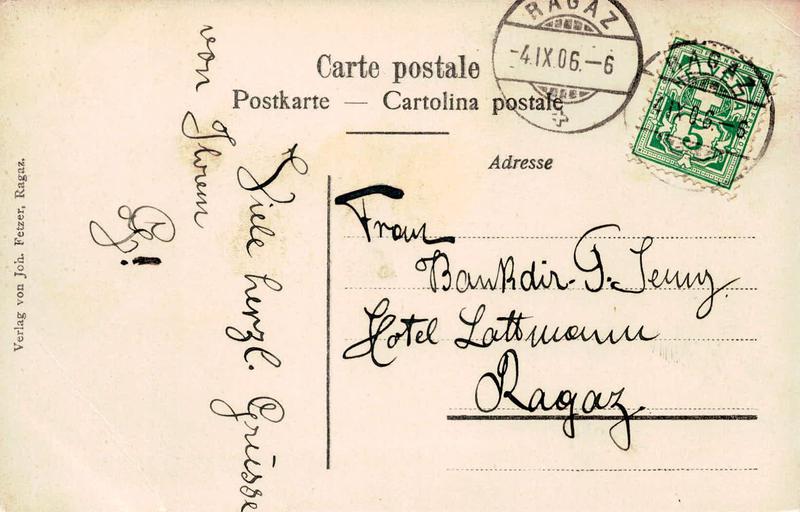 Carte postale
Postkarte — Cartolina postale
RAGAZ
-4.IX.06.-6
RAGAZ
5
Adresse
Frau
Bankdir. G. Jenny.
Hotel Lattmann
Ragaz.
Viele herzl. Grüsse
von Ihrem
Verlag von Joh. Fetzer, Ragaz.